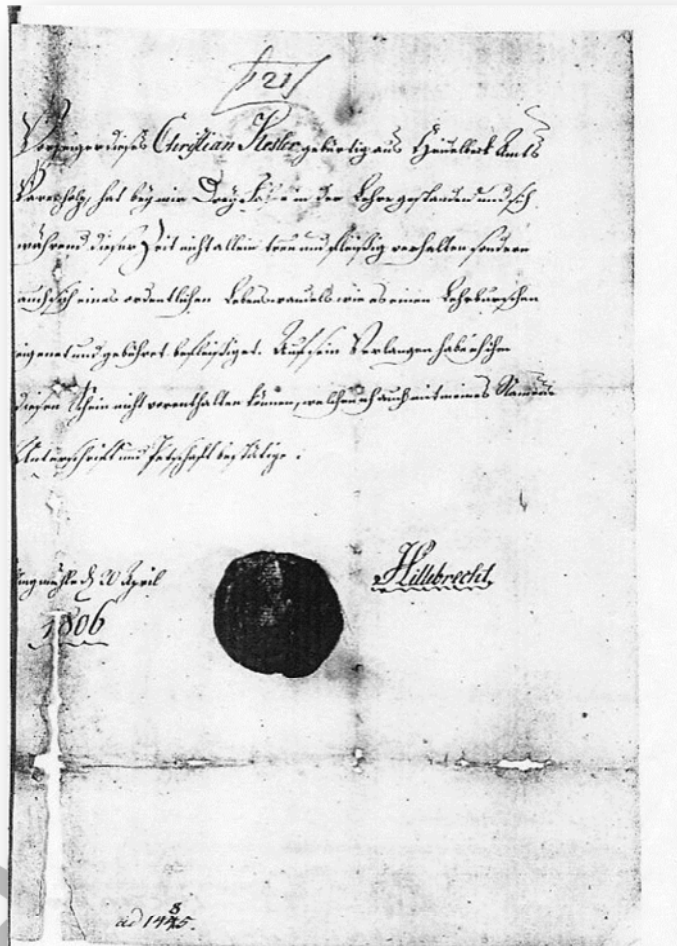 21
Vorzeiger dieses Christian Kloster gebürtig aus Heidelbeck Amts
Varenholz, hat bey mir Drey Jahre in der Lehre gestanden und sich
während dieser Zeit nicht allein treu und fleißig verhalten sondern
auch sich eines ordentlichen Lebenswandels wie es einen Lehrburschen
eigenet und gebühret befleißiget. Auf sein Verlangen habe ich ihm
diesen Schein nicht vorenthalten können, welchen ich auch mit meines Namens
Unterschrift und Petschaft bestätige.
d 20 April
Hillebrecht
1806
ad